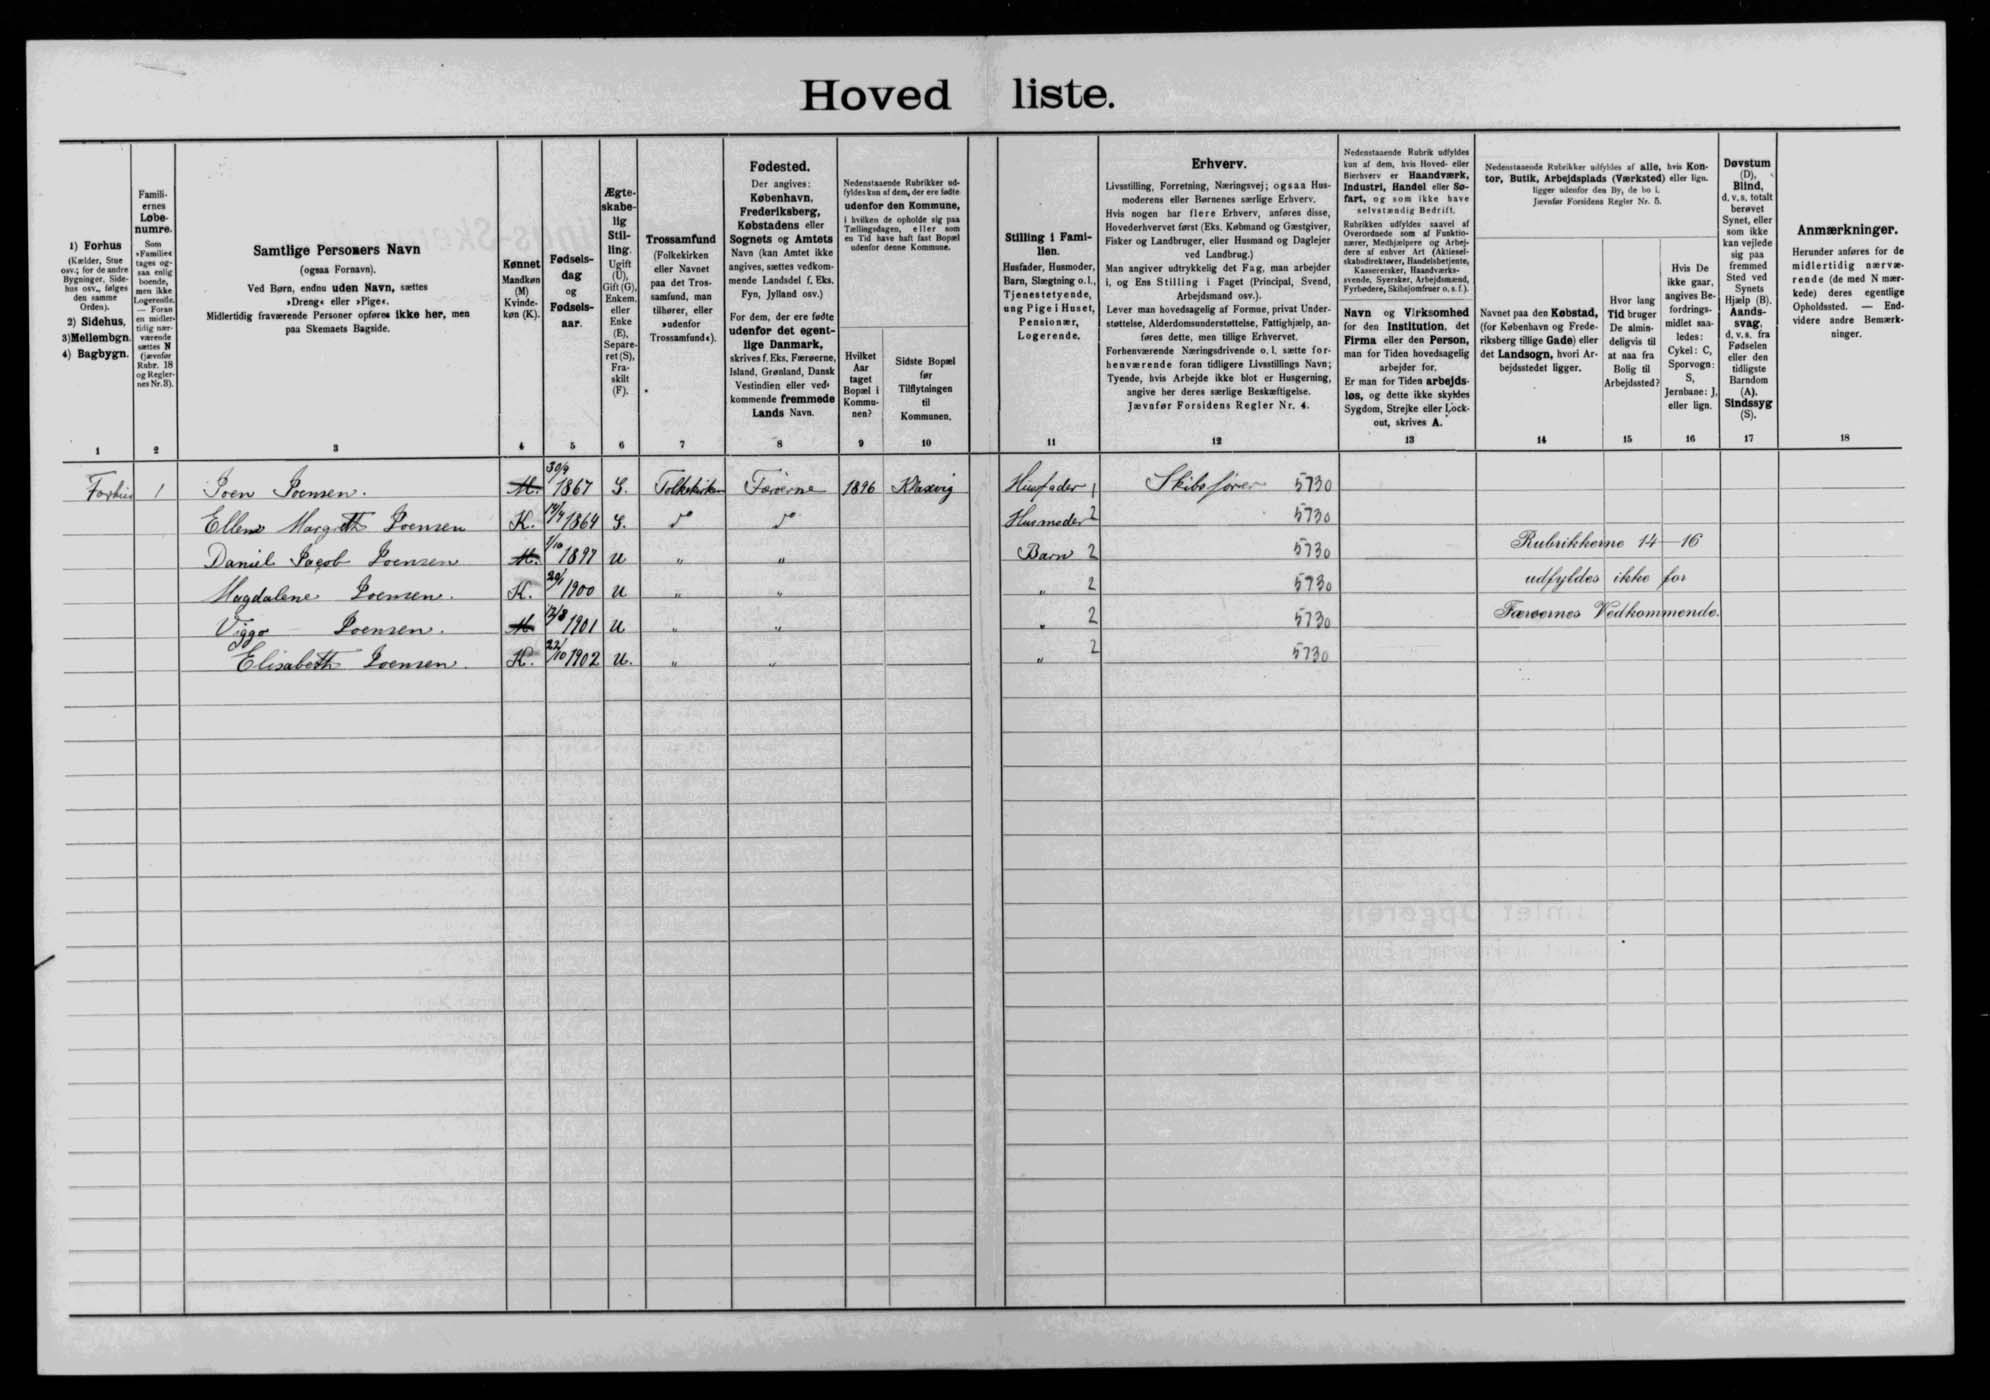 Hoved liste.
1) Forhus
(Kælder, Stue
osv.; for de andre
Bygninger, Side-
hus osv., følges
den samme
Orden).
2) Sidehus,
3) Mellembgn.
4) Bagbygn.
1
Famili-
ernes
Løbe-
numre.
Som
»Familie«
tages og-
saa enlig
boende,
men ikke
Logerende.
— Foran
en midler-
tidig nær-
værende
sættes N
(jævnfør
Rubr. 18
og Regler-
nes Nr. 3).
2
Samtlige Personers Navn
(ogsaa Fornavn).
Ved Børn, endnu uden Navn, sættes
»Dreng« eller »Pige«.
Midlertidig fraværende Personer opføres ikke her, men
paa Skemaets Bagside.
3
Kønnet
Mandkøn
(M)
Kvinde-
køn (K).
4
Fødsels-
dag
og
Fødsels-
aar.
5
Ægte-
skabe-
lig
Stil-
ling.
Ugift
(U),
Gift (G),
Enkem.
eller
Enke
(E),
Separe-
ret (S),
Fra-
skilt
(F).
6
Trossamfund
(Folkekirken
eller Navnet
paa det Tros-
samfund, man
tilhører, eller
»udenfor
Trossamfund«).
7
Fødested.
Der angives:
København,
Frederiksberg,
Købstadens eller
Sognets og Amtets
Navn (kan Amtet ikke
angives, sættes vedkom-
mende Landsdel f. Eks.
Fyn, Jylland osv.)
For dem, der ere fødte
udenfor det egent-
lige Danmark,
skrives f. Eks. Færøerne,
Island, Grønland, Dansk
Vestindien eller ved-
kommende fremmede
Lands Navn.
8
Nedenstaaende Rubrikker ud-
fyldes kun af dem, der ere fødte
udenfor den Kommune,
i hvilken de opholde sig paa
Tællingsdagen, eller som
en Tid have haft fast Bopæl
udenfor denne Kommune.
Hvilket
Aar
taget
Bopæl i
Kommu-
nen?
9
Sidste Bopæl
før
Tilflytningen
til
Kommunen.
10
Stilling i Fami-
lien.
Husfader, Husmoder,
Barn, Slægtning o. l.,
Tjenestetyende,
ung Pige i Huset,
Pensionær,
Logerende.
11
Erhverv.
Livsstilling, Forretning, Næringsvej; ogsaa Hus-
moderens eller Børnenes særlige Erhverv.
Hvis nogen har flere Erhverv, anføres disse,
Hovederhvervet først (Eks. Købmand og Gæstgiver,
Fisker og Landbruger, eller Husmand og Daglejer
ved Landbrug.)
Man angiver udtrykkelig det Fag, man arbejder
i, og Ens Stilling i Faget (Principal, Svend,
Arbejdsmand osv.).
Lever man hovedsagelig af Formue, privat Under-
støttelse, Alderdomsunderstøttelse, Fattighjælp, an-
føres dette, men tillige Erhvervet.
Forhenværende Næringsdrivende o. l. sætte for-
henværende foran tidligere Livsstillings Navn;
Tyende, hvis Arbejde ikke blot er Husgerning,
angive her deres særlige Beskæftigelse.
Jævnfør Forsidens Regler Nr. 4.
12
Nedenstaaende Rubrik udfyldes
kun af dem, hvis Hoved- eller
Bierhverv er Haandværk,
Industri, Handel eller Sø-
fart, og som ikke have
selvstændig Bedrift.
Rubrikken udfyldes saavel af
Overordnede som af Funktio-
nærer, Medhjælpere og Arbej-
dere af enhver Art (Aktiesel-
skabsdirektører, Handelsbetjente,
Kassererske, Haandværks-
svende, Syersker, Arbejdsmænd,
Fyrbødere, Skibsjomfruer o. s. f.).
Navn og Virksomhed
for den Institution, det
Firma eller den Person,
man for Tiden hovedsagelig
arbejder for.
Er man for Tiden arbejds-
løs, og dette ikke skyldes
Sygdom, Strejke eller Lock-
out, skrives A.
13
Nedenstaaende Rubrikker udfyldes af alle, hvis Kon-
tor, Butik, Arbejdsplads (Værksted) eller lign.
ligger udenfor den By, de bo i.
Jævnfør Forsidens Regler Nr. 5.
Navnet paa den Købstad,
(for København og Frede-
riksberg tillige Gade) eller
det Landsogn, hvori Ar-
bejdsstedet ligger.
14
Hvor lang
Tid bruger
De almin-
deligvis til
at naa fra
Bolig til
Arbejdssted?
15
Hvis De
ikke gaar,
angives Be-
fordrings-
midlet saa-
ledes:
Cykel: C,
Sporvogn:
S,
Jernbane: J,
eller lign.
16
Døvstum
(D),
Blind,
d. v. s. totalt
berøvet
Synet, eller
som ikke
kan vejlede
sig paa
fremmed
Sted ved
Synets
Hjælp (B).
Aands-
svag,
d. v. s. fra
Fødselen
eller den
tidligste
Barndom
(A).
Sindssyg
(S).
17
Anmærkninger.
Herunder anføres for de
midlertidig nærvæ-
rende (de med N mær-
kede) deres egentlige
Opholdssted. — End-
videre andre Bemærk-
ninger.
18
Forhus 1 Joen Joensen. M. 30/9 1867 G. Folkekirken Færøerne 1896 Klaxvig Husfader 1 Skibsfører 5730
Ellen Margreth Joensen K. 14/4 1864 G. do do Husmoder 2 5730
Daniel Jacob Joensen M. 1/10 1897 U " " Barn 2 5730 Rubrikkerne 14-16
Magdalene Joensen. K. 20/1 1900 U " " " 2 5730 udfyldes ikke for
Viggo - Joensen. M 12/8 1901 U " " " 2 5730 Færøernes Vedkommende.
Elisabeth Joensen. K. 22/10 1902 U. " " " 2 5730